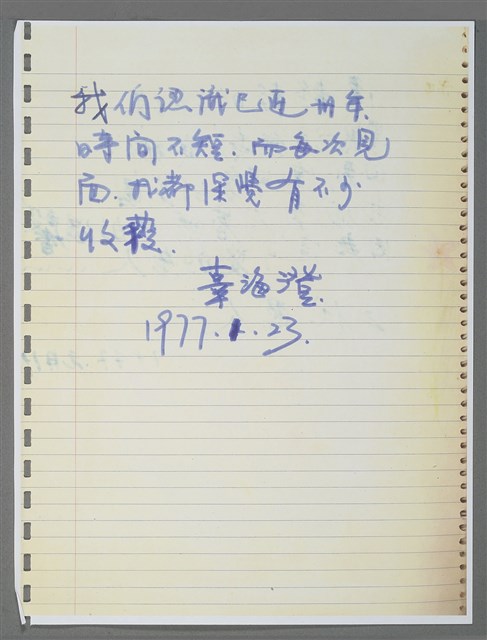 我们認識已近卅年.
時间不短.而每次見
面.我都深覺有不少
收穫.
辜海澄.
1977.1.23.